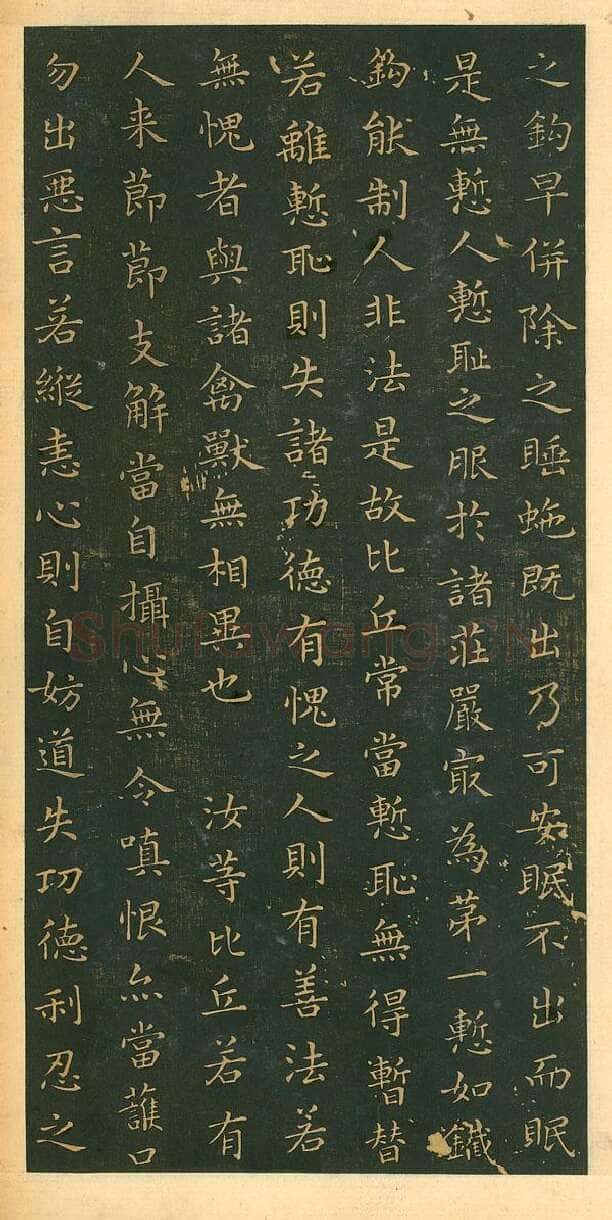 之鈎早併除之睡虵既出乃可安眠不出而眠
是無慙人慙耻之服於諸莊嚴冣為苐一慙如鐵
鈎能制人非法是故比丘常當慙恥無得暫替
若離慙恥則失諸功德有愧之人則有善法若
無愧者與諸禽獸無相異也 汝等比丘若有
人来莭莭支解當自攝心無令嗔恨亦當護口
勿出惡言若縱恚心則自妨道失功德利忍之
Shufawang.CN